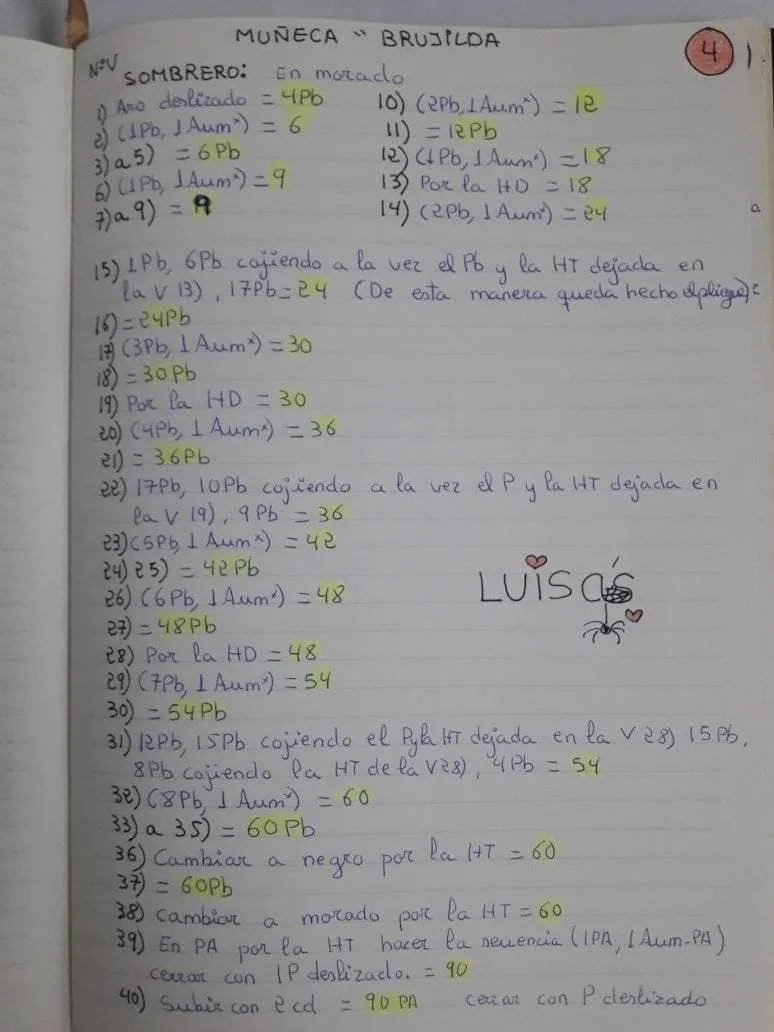 MUÑECA " BRUJILDA
4
NºV
SOMBRERO: En morado
1) Aro deslizado = 4Pb
2) (1Pb, 1 Aumˣ) = 6
3) a 5) = 6Pb
6) (1Pb, 1 Aumˣ) = 9
7) a 9) = 9
10) (2Pb, 1 Aumˣ) = 12
11) = 12Pb
12) (1Pb, 1 Aumˣ) = 18
13) Por la HD = 18
14) (2Pb, 1 Aumˣ) = 24
a
15) 1Pb, 6Pb cojiendo a la vez el Pb y la HT dejada en
la V 13), 17Pb = 24 (De esta manera queda hecho el pliegue)
16) = 24Pb
17) (3Pb, 1 Aumˣ) = 30
18) = 30Pb
19) Por la HD = 30
20) (4Pb, 1 Aumˣ) = 36
21) = 36Pb
22) 17Pb, 10Pb cojiendo a la vez el P y la HT dejada en
la V 19), 9Pb = 36
23) (5Pb, 1 Aumˣ) = 42
24) 25) = 42Pb
26) (6Pb, 1 Aumˣ) = 48
27) = 48Pb
28) Por la HD = 48
29) (7Pb, 1 Aumˣ) = 54
30) = 54Pb
LUISA'S
31) 12Pb, 15Pb cojiendo el P y la HT dejada en la V 28) 15Pb,
8Pb cojiendo la HT de la V 28), 4Pb = 54
32) (8Pb, 1 Aumˣ) = 60
33) a 35) = 60Pb
36) Cambiar a negro por la HT = 60
37) = 60Pb
38) Cambiar a morado por la HT = 60
39) En PA por la HT hacer la seuencia (1PA, 1 Aum-PA)
cerrar con 1P deslizado. = 90
40) Subir con 2cd = 90 PA cerrar con P deslizado